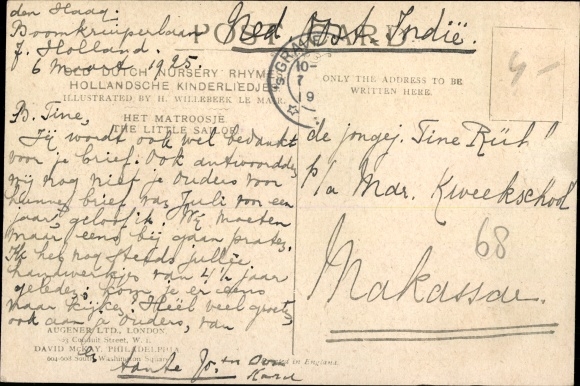 den Haag.
Boomkruiperlaan
Z. Holland.
6 maart 1925.
Ned. Oost. Indië.
POST CARD
OLD DUTCH NURSERY RHYMES
HOLLANDSCHE KINDERLIEDJES
ILLUSTRATED BY H. WILLEBEEK LE MAIR
HET MATROOSJE
(THE LITTLE SAILOR)
ONLY THE ADDRESS TO BE
WRITTEN HERE.
'S GRAVE
10-
7
9
4-
B. Tine,
Jij wordt ook wel bedankt
voor je brief. Ook antwoordden
wij nog niet je ouders voor
hunne brief van Juli van een
jaar, geloof ik. Wij moeten
maar eens bij gaan praten.
Is het nog steeds jullie
handwerkjes van 4½ jaar
geleden; kom je er eens
naar kijken? Heel veel groeten,
ook aan je ouders, van
Tante Jo. en Oom
Karel
de jongej. Tine Rüt!
p/a Mdr. Kweekschool
68
Makassar.
AUGENER LTD., LONDON
DAVID McKAY, PHILADELPHIA
604-608 South Washington Square
in England.